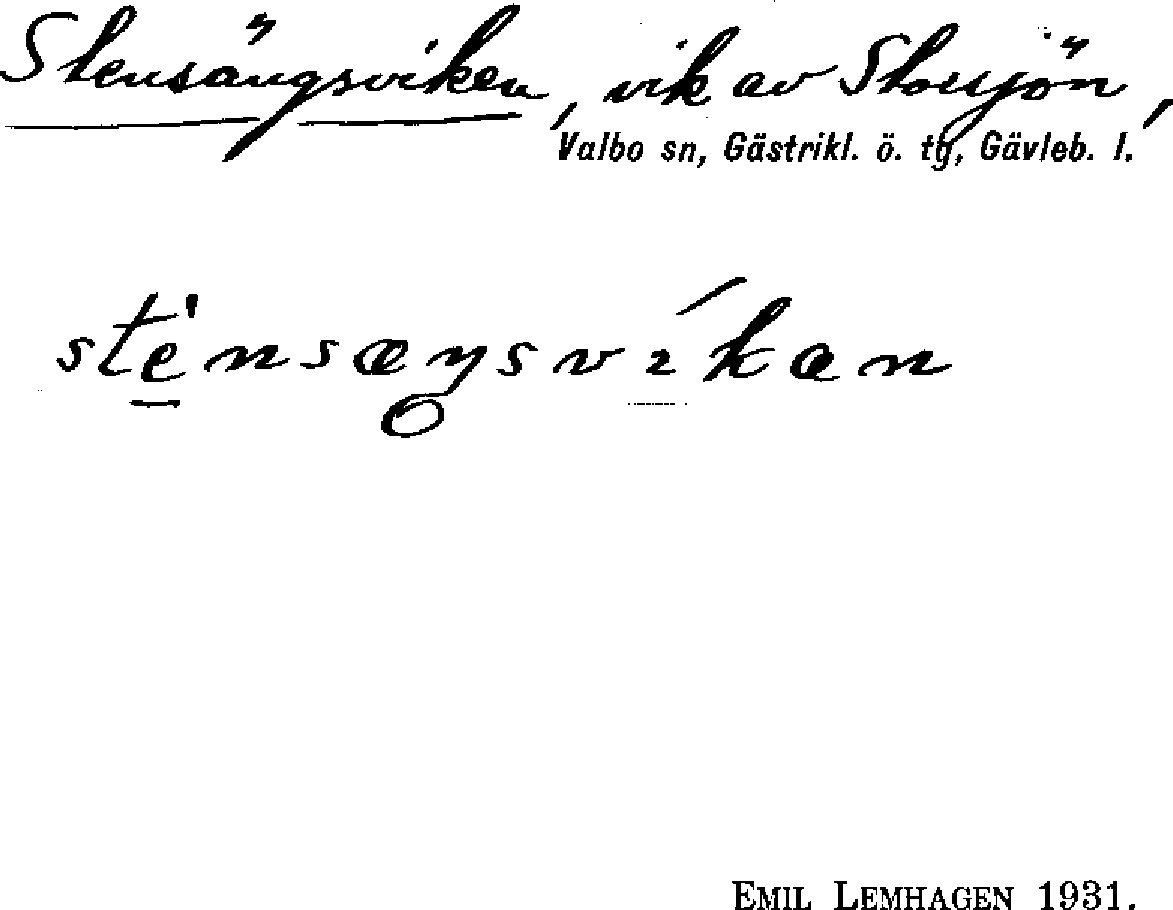 Stensängsviken, vik av Storsjön,
Valbo sn, Gästrikl. ö. tg, Gävleb. l.
ste̱'nsæŋsvıkan
EMIL LEMHAGEN 1931.